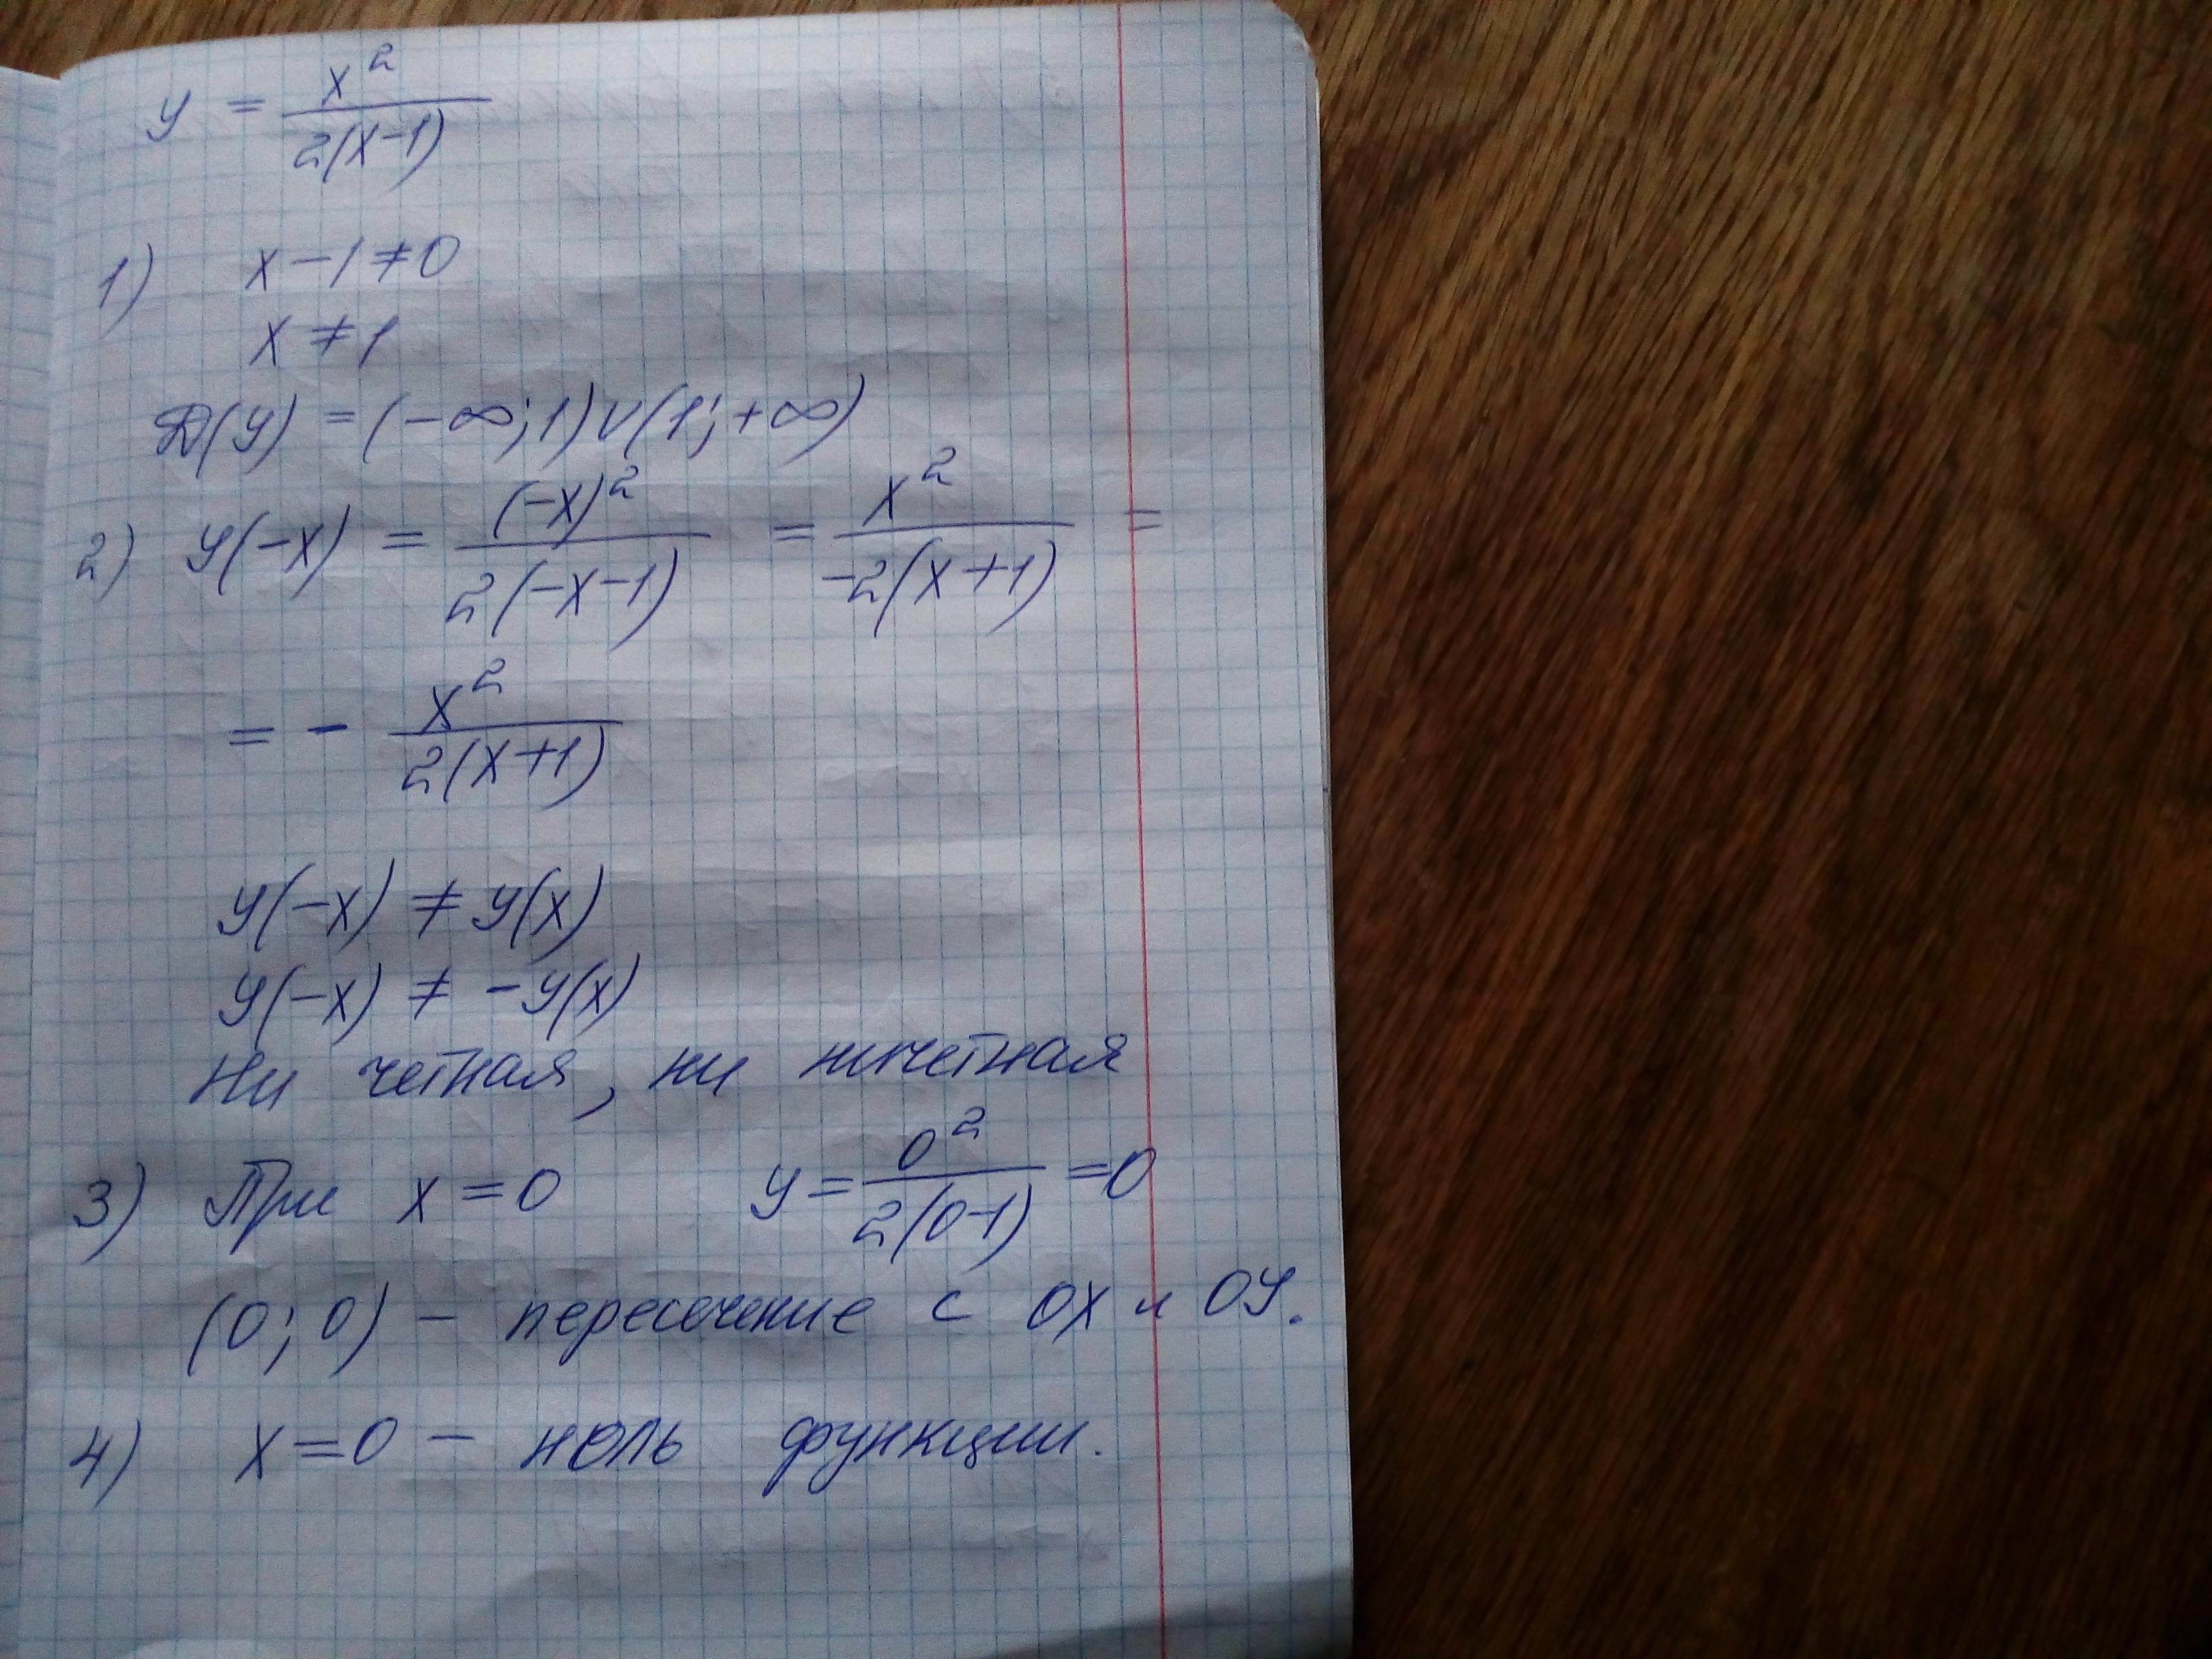 y = x²/2(x-1)
1) x-1≠0
x≠1
D(y) = (-∞;1)∪(1;+∞)
2) y(-x) = (-x)²/2(-x-1) = x²/-2(x+1) =
= - x²/2(x+1)
y(-x) ≠ y(x)
y(-x) ≠ -y(x)
Ни четная, ни ничетная
3) При x=0 y = 0²/2(0-1) =0
(0;0) - пересечение с OX и OY.
4) x=0 - ноль функции.